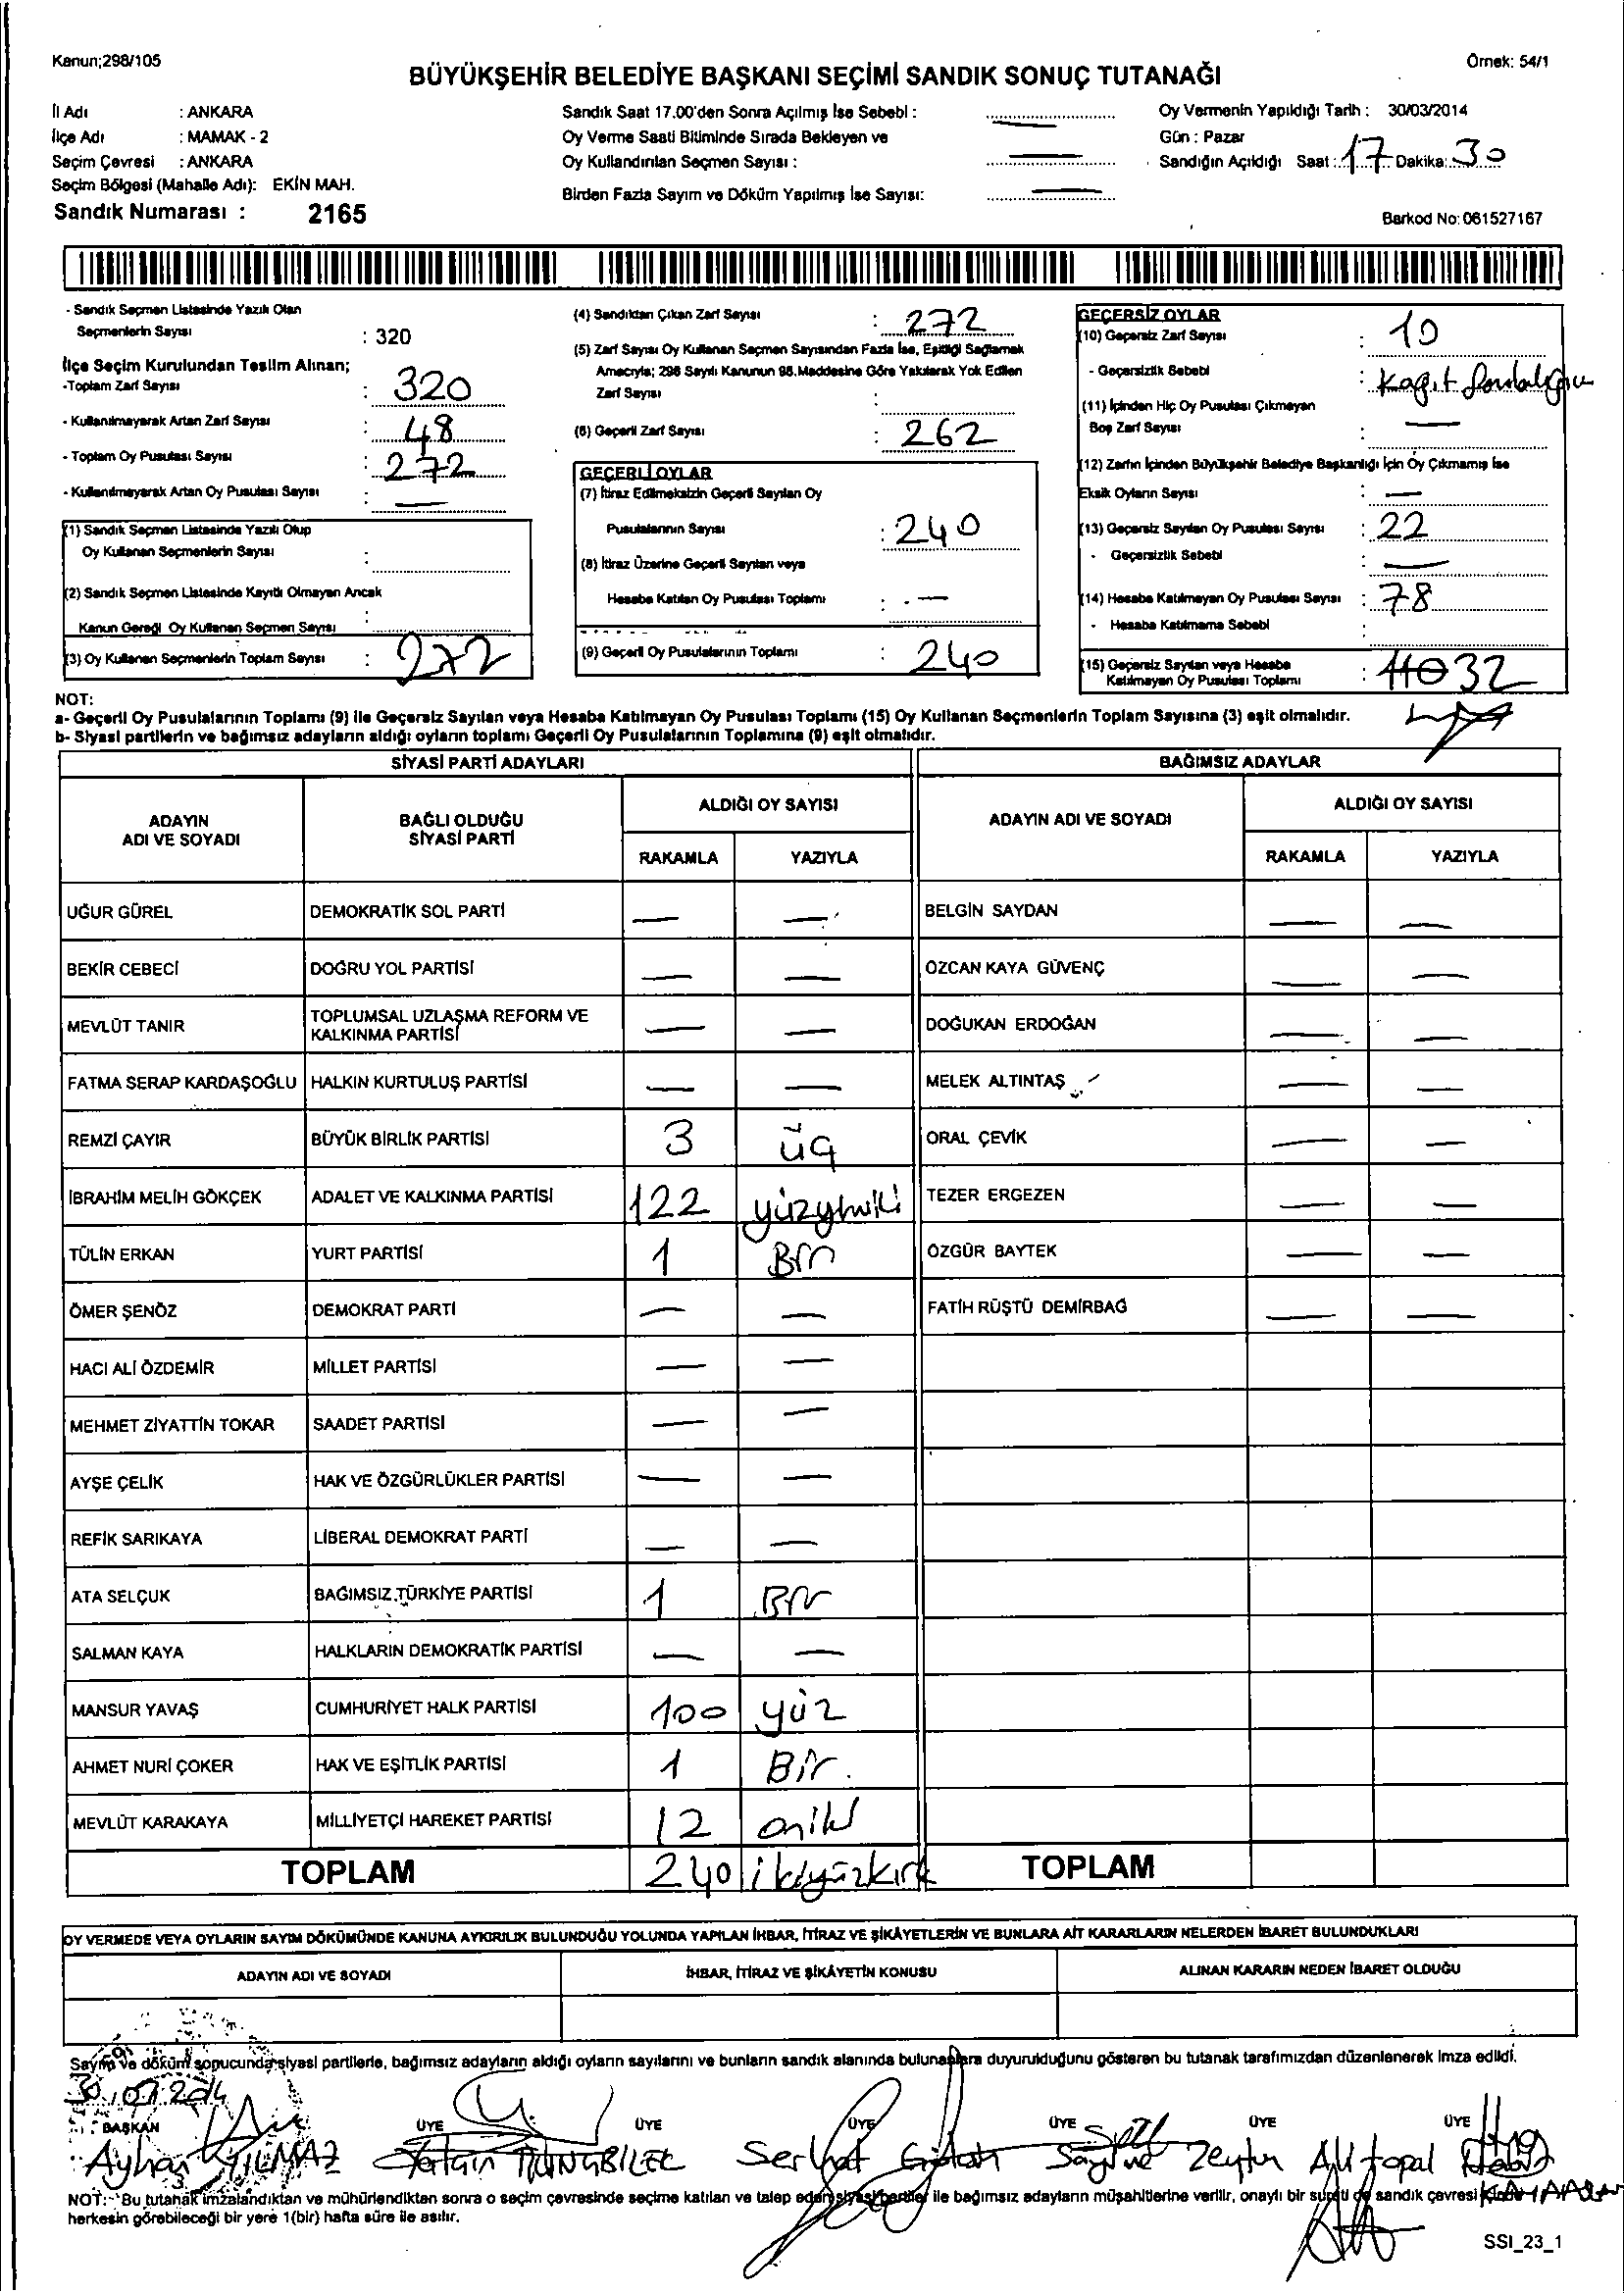 Kanun;298/105
Örnek: 54/1
BÜYÜKŞEHİR BELEDİYE BAŞKANI SEÇİMİ SANDIK SONUÇ TUTANAĞI
İl Adı : ANKARA
İlçe Adı : MAMAK - 2
Seçim Çevresi : ANKARA
Seçim Bölgesi (Mahalle Adı): EKİN MAH.
Sandık Numarası : 2165
Sandık Saat 17.00'den Sonra Açılmış İse Sebebi : —
Oy Verme Saati Bitiminde Sırada Bekleyen ve
Oy Kullandırılan Seçmen Sayısı : —
Birden Fazla Sayım ve Döküm Yapılmış İse Sayısı: —
Oy Vermenin Yapıldığı Tarih : 30/03/2014
Gün : Pazar
Sandığın Açıldığı Saat : 17 Dakika: 30
Barkod No: 061527167
- Sandık Seçmen Listesinde Yazılı Olan
Seçmenlerin Sayısı : 320
İlçe Seçim Kurulundan Teslim Alınan;
-Toplam Zarf Sayısı : 320
- Kullanılmayarak Artan Zarf Sayısı : 48
- Toplam Oy Pusulası Sayısı : 272
- Kullanılmayarak Artan Oy Pusulası Sayısı : —
(1) Sandık Seçmen Listesinde Yazılı Olup
Oy Kullanan Seçmenlerin Sayısı :
(2) Sandık Seçmen Listesinde Kayıtlı Olmayan Ancak
Kanun Gereği Oy Kullanan Seçmen Sayısı :
(3) Oy Kullanan Seçmenlerin Toplam Sayısı : 272
(4) Sandıktan Çıkan Zarf Sayısı : 272
(5) Zarf Sayısı Oy Kullanan Seçmen Sayısından Fazla İse, Eşitliği Sağlamak
Amacıyla; 298 Sayılı Kanunun 98.Maddesine Göre Yakılarak Yok Edilen
Zarf Sayısı :
(6) Geçerli Zarf Sayısı : 262
GEÇERLİ OYLAR
(7) İtiraz Edilmeksizin Geçerli Sayılan Oy
Pusulalarının Sayısı : 240
(8) İtiraz Üzerine Geçerli Sayılan veya
Hesaba Katılan Oy Pusulası Toplamı : —
(9) Geçerli Oy Pusulalarının Toplamı : 240
GEÇERSİZ OYLAR
(10) Geçersiz Zarf Sayısı : 10
- Geçersizlik Sebebi : Kağıt
(11) İçinden Hiç Oy Pusulası Çıkmayan
Boş Zarf Sayısı : —
(12) Zarfın İçinden Büyükşehir Belediye Başkanlığı İçin Oy Çıkmamış İse
Eksik Oyların Sayısı : —
(13) Geçersiz Sayılan Oy Pusulası Sayısı : 22
- Geçersizlik Sebebi : —
(14) Hesaba Katılmayan Oy Pusulası Sayısı : 78
- Hesaba Katılmama Sebebi :
(15) Geçersiz Sayılan veya Hesaba
Katılmayan Oy Pusulası Toplamı : 110 32
NOT:
a- Geçerli Oy Pusulalarının Toplamı (9) ile Geçersiz Sayılan veya Hesaba Katılmayan Oy Pusulası Toplamı (15) Oy Kullanan Seçmenlerin Toplam Sayısına (3) eşit olmalıdır.
b- Siyasi partilerin ve bağımsız adayların aldığı oyların toplamı Geçerli Oy Pusulalarının Toplamına (9) eşit olmalıdır.
SİYASİ PARTİ ADAYLARI BAĞIMSIZ ADAYLAR
ADAYIN ADI VE SOYADI BAĞLI OLDUĞU SİYASİ PARTİ ALDIĞI OY SAYISI ADAYIN ADI VE SOYADI ALDIĞI OY SAYISI
RAKAMLA YAZIYLA RAKAMLA YAZIYLA
UĞUR GÜREL DEMOKRATİK SOL PARTİ — — BELGİN SAYDAN — —
BEKİR CEBECİ DOĞRU YOL PARTİSİ — — ÖZCAN KAYA GÜVENÇ — —
MEVLÜT TANIR TOPLUMSAL UZLAŞMA REFORM VE KALKINMA PARTİSİ — — DOĞUKAN ERDOĞAN — —
FATMA SERAP KARDAŞOĞLU HALKIN KURTULUŞ PARTİSİ — — MELEK ALTINTAŞ — —
REMZİ ÇAYIR BÜYÜK BİRLİK PARTİSİ 3 üç ORAL ÇEVİK — —
İBRAHİM MELİH GÖKÇEK ADALET VE KALKINMA PARTİSİ 122 yüzyirmiiki TEZER ERGEZEN — —
TÜLİN ERKAN YURT PARTİSİ 1 Bir ÖZGÜR BAYTEK — —
ÖMER ŞENÖZ DEMOKRAT PARTİ — — FATİH RÜŞTÜ DEMİRBAĞ — —
HACI ALİ ÖZDEMİR MİLLET PARTİSİ — —
MEHMET ZİYATTİN TOKAR SAADET PARTİSİ — —
AYŞE ÇELİK HAK VE ÖZGÜRLÜKLER PARTİSİ — —
REFİK SARIKAYA LİBERAL DEMOKRAT PARTİ — —
ATA SELÇUK BAĞIMSIZ TÜRKİYE PARTİSİ 1 Bir
SALMAN KAYA HALKLARIN DEMOKRATİK PARTİSİ — —
MANSUR YAVAŞ CUMHURİYET HALK PARTİSİ 100 yüz
AHMET NURİ ÇOKER HAK VE EŞİTLİK PARTİSİ 1 Bir.
MEVLÜT KARAKAYA MİLLİYETÇİ HAREKET PARTİSİ 12 oniki
TOPLAM 240 ikiyüzkırk TOPLAM
OY VERMEDE VEYA OYLARIN SAYIM DÖKÜMÜNDE KANUNA AYKIRILIK BULUNDUĞU YOLUNDA YAPILAN İHBAR, İTİRAZ VE ŞİKÂYETLERİN VE BUNLARA AİT KARARLARIN NELERDEN İBARET BULUNDUKLARI
ADAYIN ADI VE SOYADI İHBAR, İTİRAZ VE ŞİKÂYETİN KONUSU ALINAN KARARIN NEDEN İBARET OLDUĞU
Sayım ve döküm sonucunda siyasi partilerle, bağımsız adayların aldığı oyların sayılarını ve bunların sandık alanında bulunanlara duyurulduğunu gösteren bu tutanak tarafımızdan düzenlenerek imza edildi.
BAŞKAN ÜYE ÜYE ÜYE ÜYE ÜYE ÜYE
Ayhan YILMAZ Serhat Zeytun Ali topal
NOT: Bu tutanak imzalandıktan ve mühürlendikten sonra o seçim çevresinde seçime katılan ve talep eden siyasi partiler ile bağımsız adayların müşahitlerine verilir, onaylı bir sureti de sandık çevresi
herkesin görebileceği bir yere 1(bir) hafta süre ile asılır.
SSI_23_1